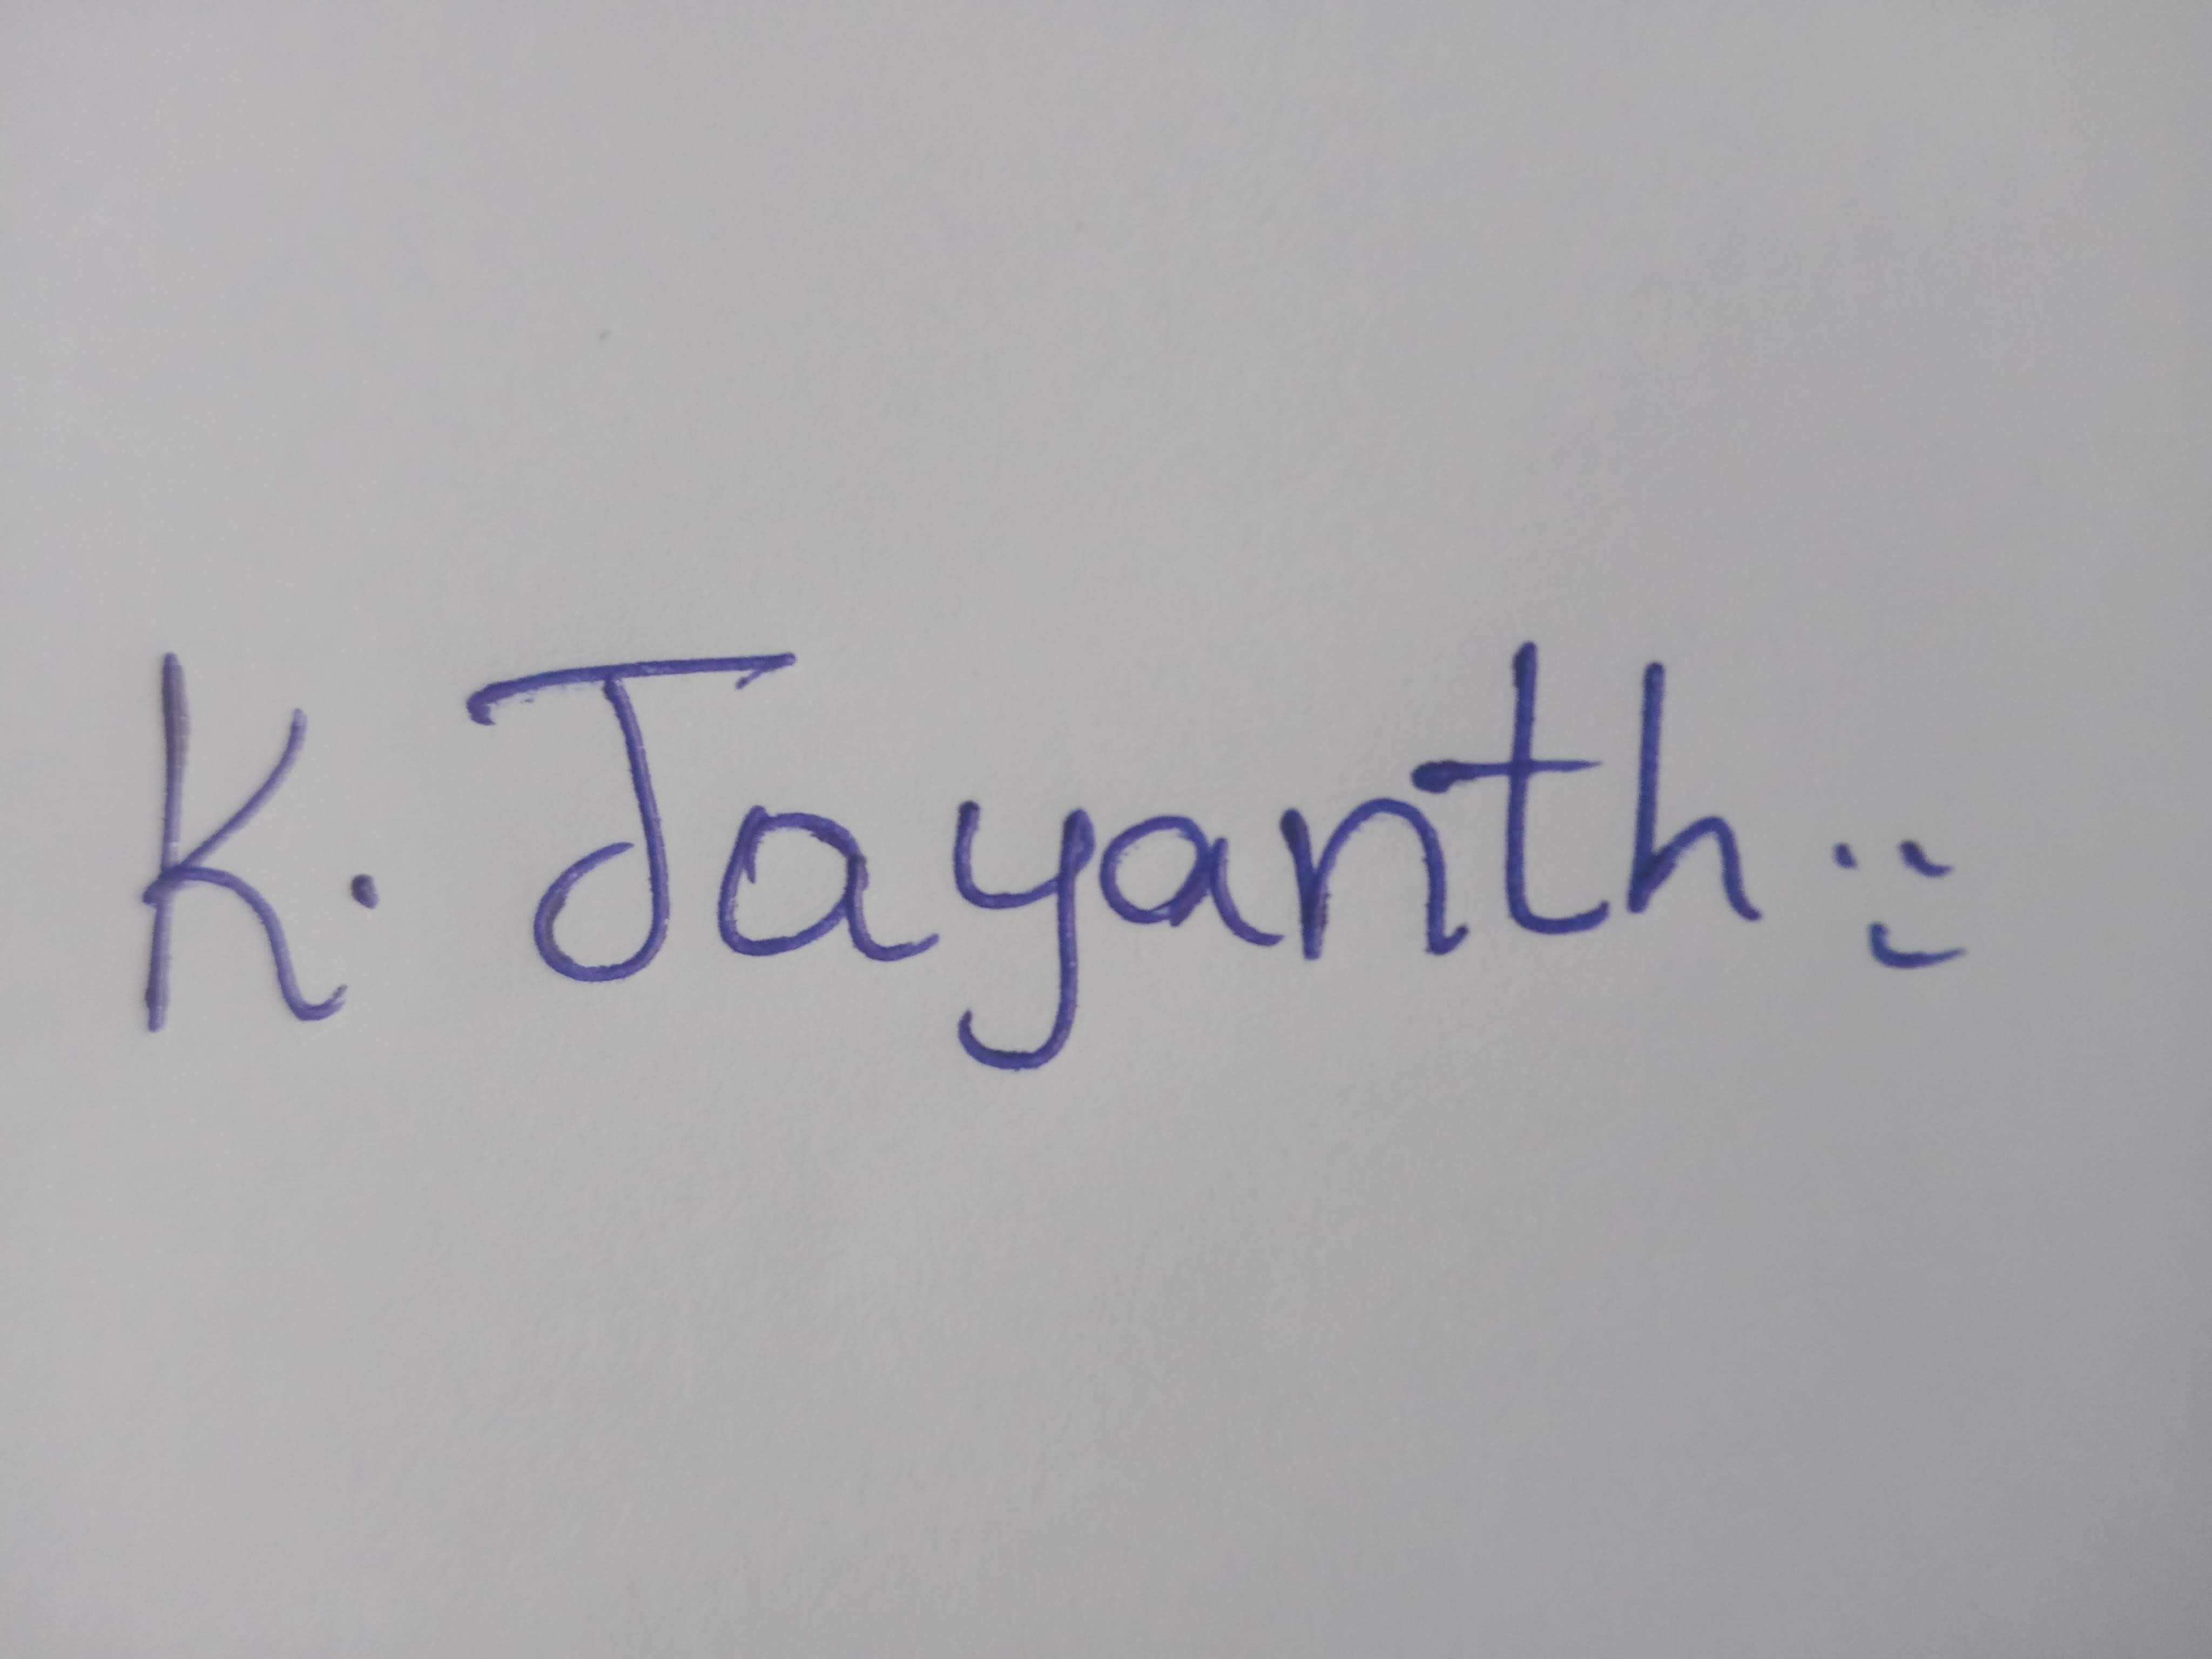 K. Jayanth :)